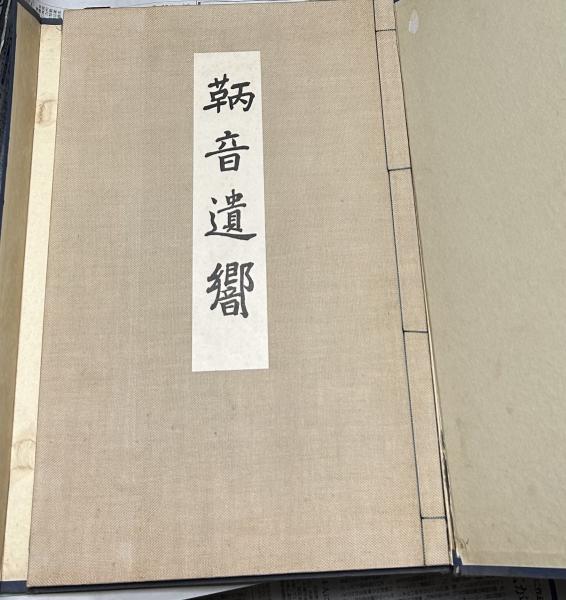 鞆音遺響